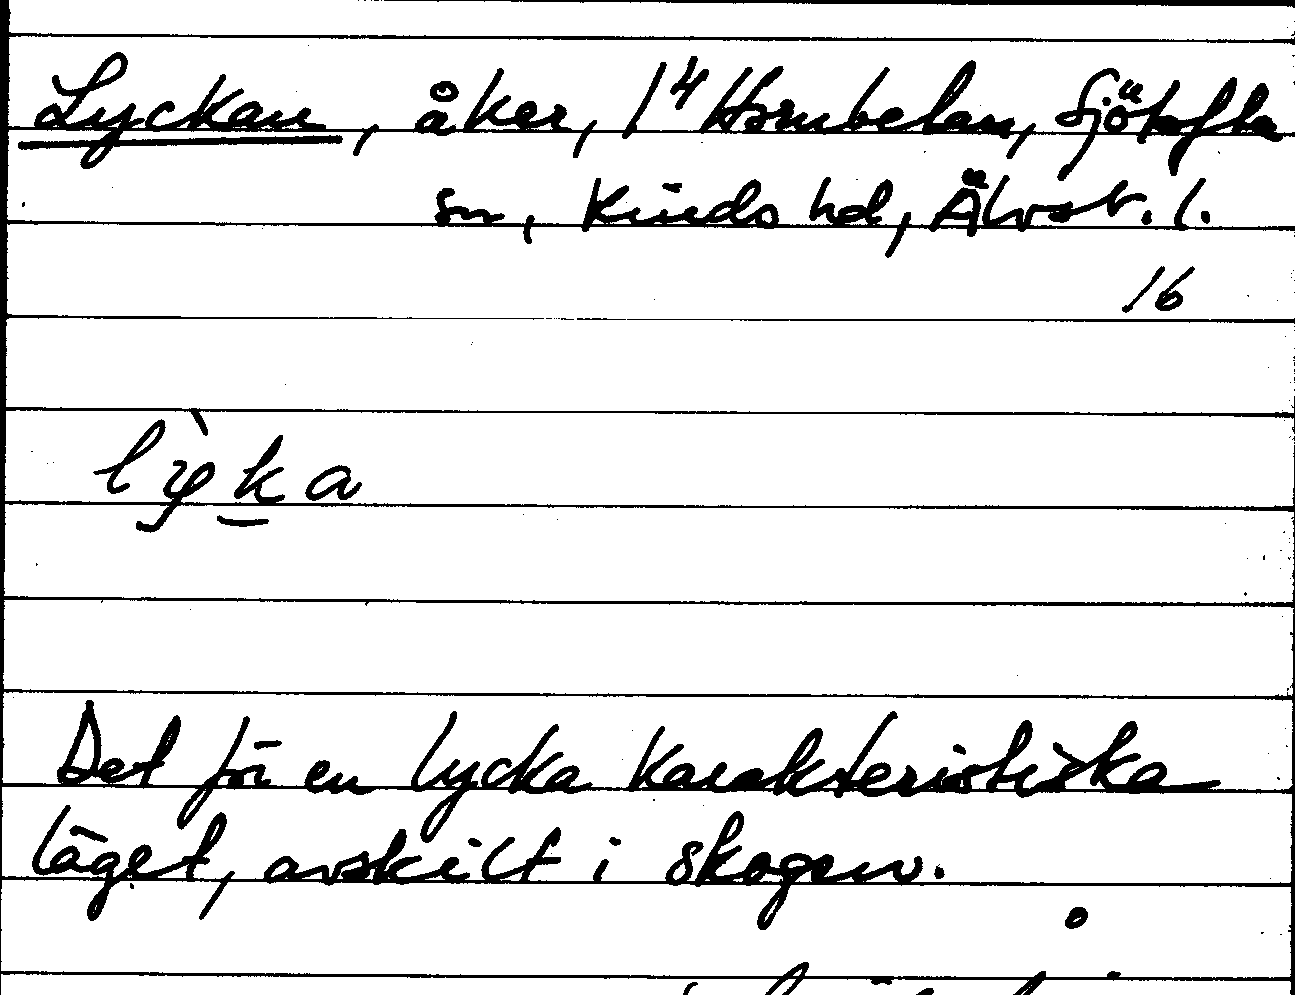 Lyckan, åker, 1⁴ Hornbelan, Sjötofta
sn, Kinds hd, Älvsb. l.
16
lỳka
Det för en lycka karakteristiska
läget, avskilt i skogen.